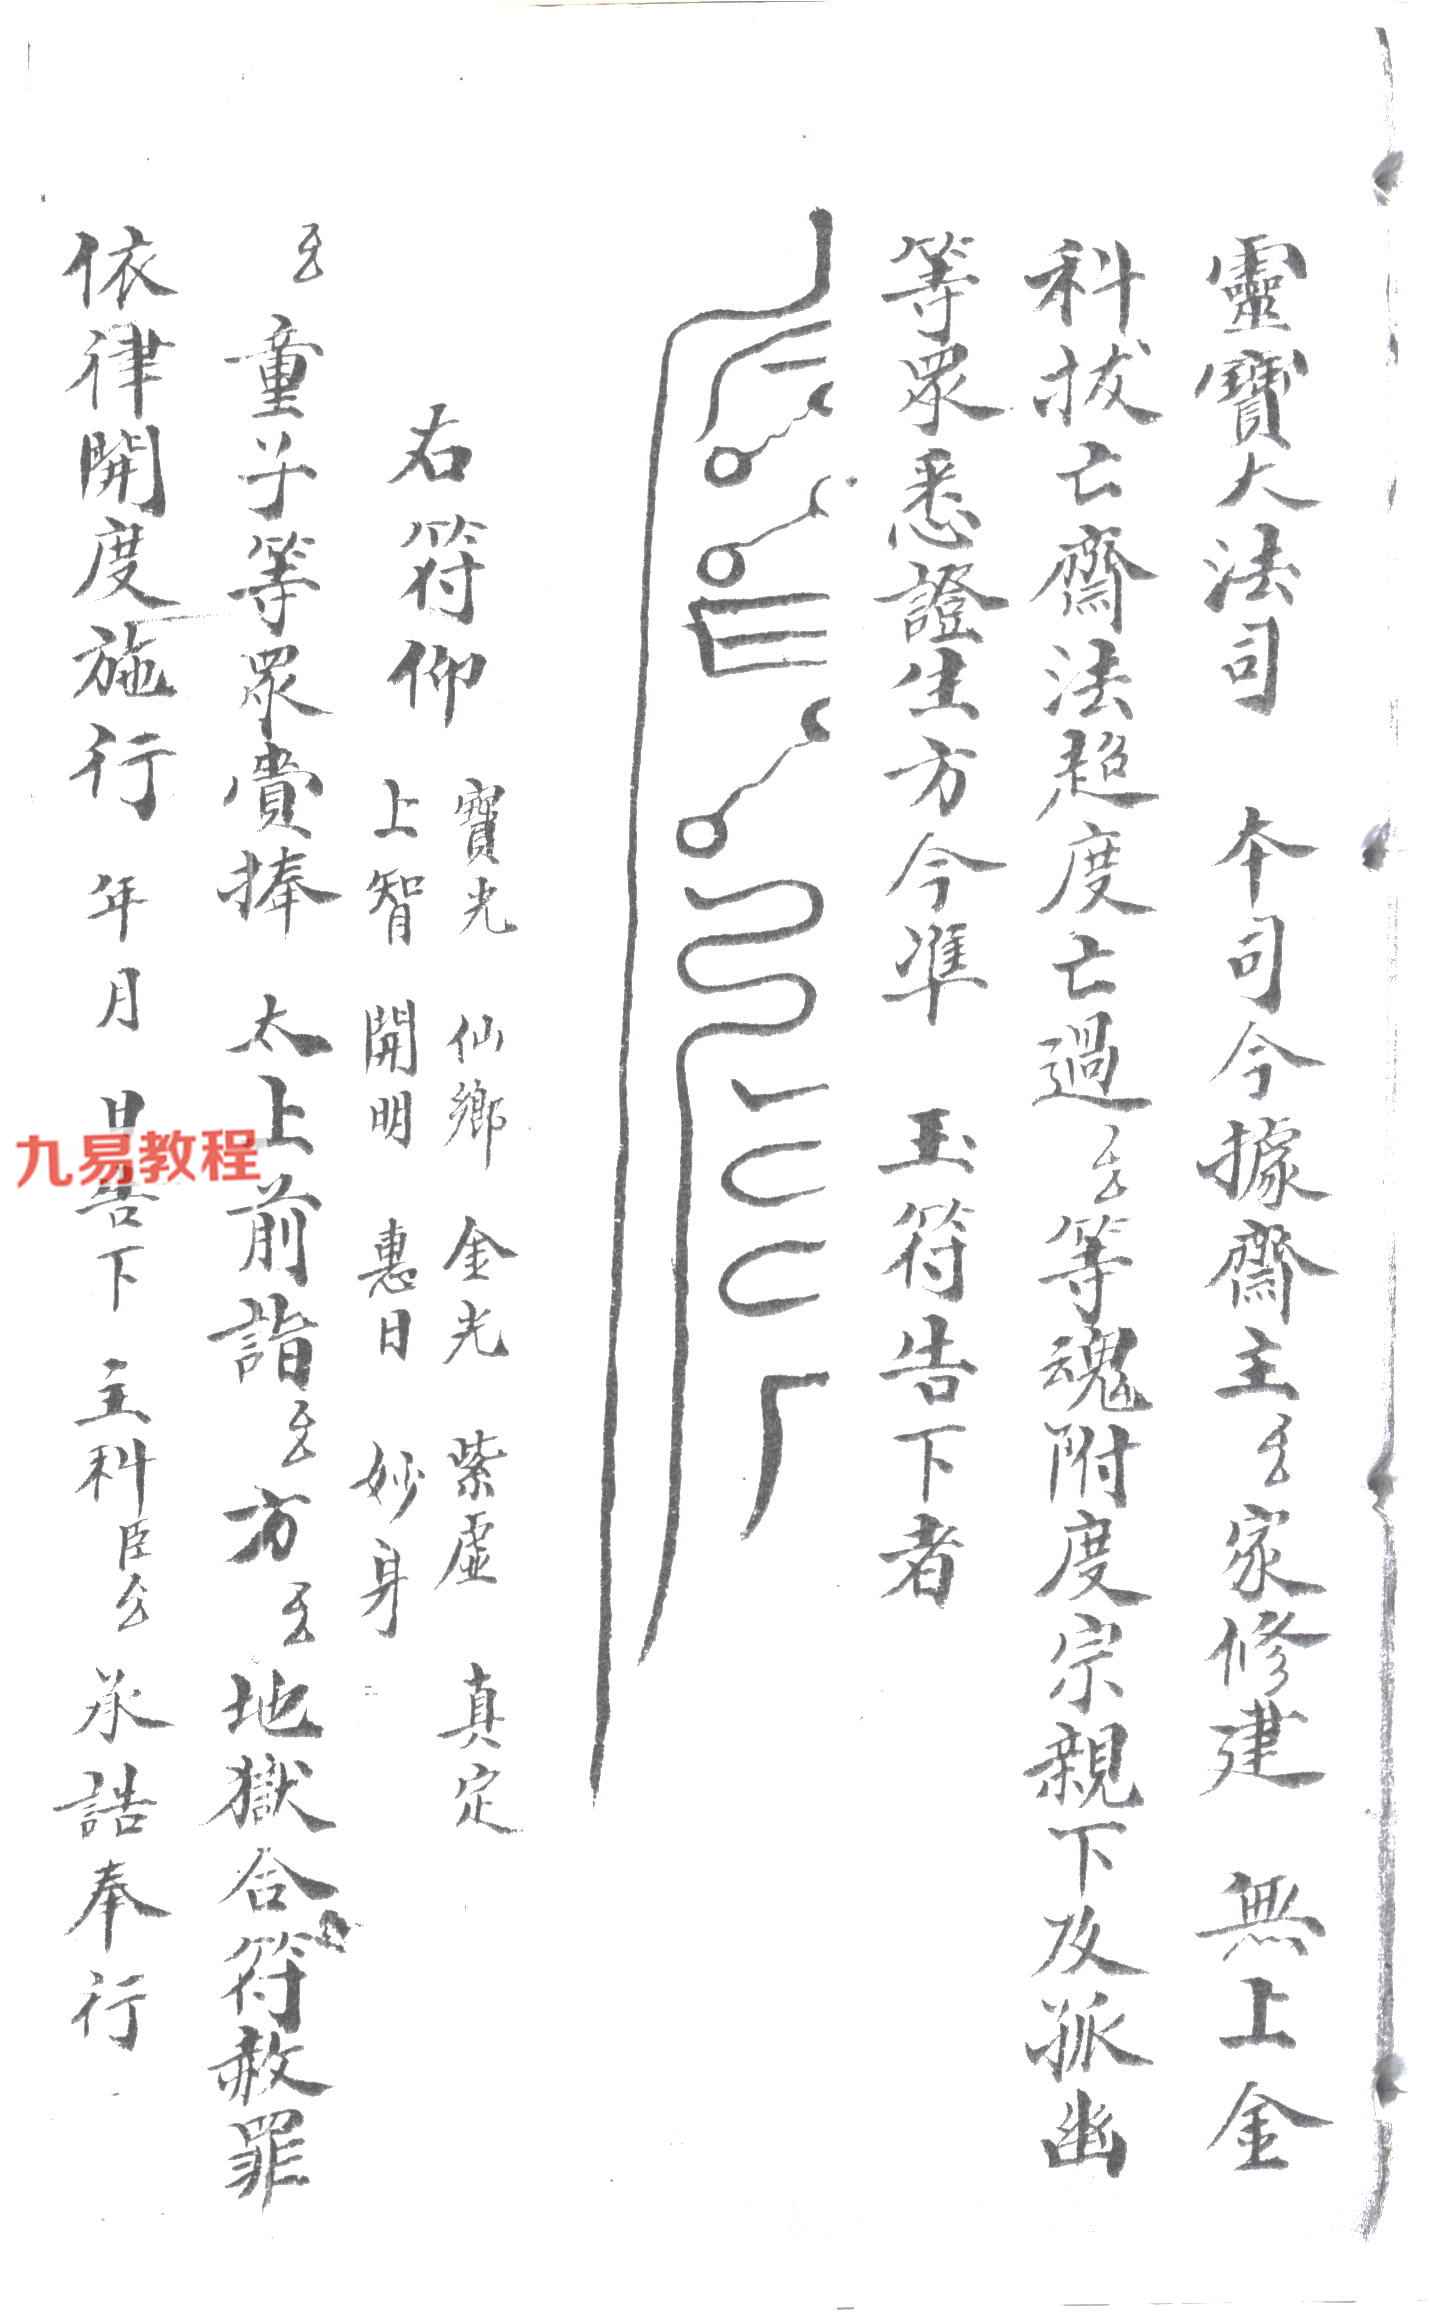 靈寶大法司 本司今據齋主厶家修建 無上金
科拔亡齋法超度亡過厶等魂附度宗親下及孤幽
等眾悉證生方今準 玉符告下者
右符仰 寶光 仙鄉 金光 紫虛 真定
上智 開明 惠日 妙身
厶童子等眾賫捧 太上前詣厶方厶地獄合符赦罪
依律開度施行 年 月 日告下 主科臣厶承誥奉行
九易教程